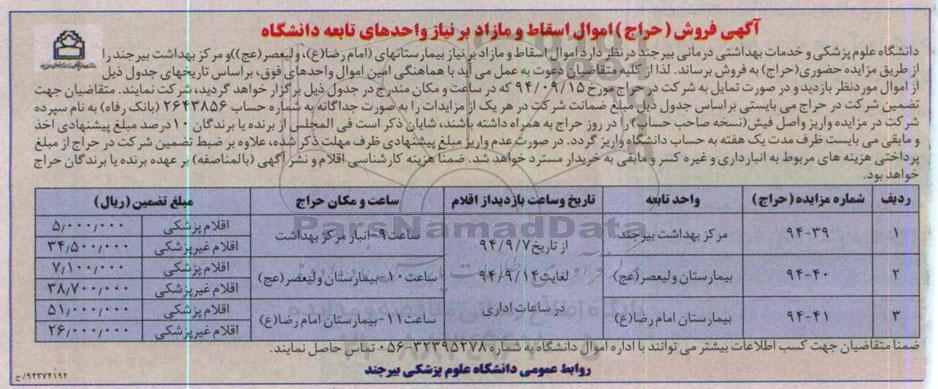 آگهی فروش (حراج) اموال اسقاط و مازاد بر نیاز واحدهای تابعه دانشگاه
دانشگاه علوم پزشکی و خدمات بهداشتی درمانی بیرجند در نظر دارد اموال اسقاط و مازاد بر نیاز بیمارستانهای (امام رضا(ع)، ولیعصر(عج)) و مرکز بهداشت بیرجند را
از طریق مزایده حضوری (حراج) به فروش برساند. لذا از کلیه متقاضیان دعوت به عمل می آید با هماهنگی امین اموال واحدهای فوق، بر اساس تاریخهای جدول ذیل
از اموال مورد نظر بازدید و در صورت تمایل به شرکت در حراج مورخ ۹۴/۰۹/۱۵ که در ساعات و مکان مندرج در جدول ذیل برگزار خواهد گردید، شرکت نمایند. متقاضیان جهت
تضمین شرکت در حراج می بایستی بر اساس جدول ذیل مبلغ ضمانت شرکت در هر یک از مزایدات را به صورت جداگانه به شماره حساب ۲۶۴۳۸۵۶ (بانک رفاه) به نام سپرده
شرکت در مزایده واریز و اصل فیش (نسخه صاحب حساب) را در روز حراج به همراه داشته باشند، شایان ذکر است فی المجلس از برنده یا برندگان ۱۰ درصد مبلغ پیشنهادی اخذ
و مابقی می بایست ظرف مدت یک هفته به حساب دانشگاه واریز گردد. در صورت عدم واریز مبلغ پیشنهادی ظرف مهلت ذکر شده، علاوه بر ضبط تضمین شرکت در حراج از مبلغ
پرداختی هزینه های مربوط به انبارداری و غیره کسر و مابقی به خریدار مسترد خواهد شد. ضمنا هزینه کارشناسی اقلام و نشر آگهی (بالمناصفه) بر عهده برنده یا برندگان حراج
خواهد بود.
ردیف شماره مزایده (حراج) واحد تابعه تاریخ وساعت بازدید از اقلام ساعت و مکان حراج مبلغ تضمین (ریال)
۱ ۹۴-۳۹ مرکز بهداشت بیرجند از تاریخ ۹۴/۹/۷ ساعت ۹- انبار مرکز بهداشت اقلام پزشکی ۵/۰۰۰/۰۰۰
اقلام غیرپزشکی ۳۴/۵۰۰/۰۰۰
۲ ۹۴-۴۰ بیمارستان ولیعصر(عج) لغایت ۹۴/۹/۱۴ ساعت ۱۰- بیمارستان ولیعصر(عج) اقلام پزشکی ۷/۱۰۰/۰۰۰
اقلام غیرپزشکی ۳۸/۷۰۰/۰۰۰
۳ ۹۴-۴۱ بیمارستان امام رضا(ع) در ساعات اداری ساعت ۱۱- بیمارستان امام رضا(ع) اقلام پزشکی ۵۱/۰۰۰/۰۰۰
اقلام غیرپزشکی ۲۶/۰۰۰/۰۰۰
ضمنا متقاضیان جهت کسب اطلاعات بیشتر می توانند با اداره اموال دانشگاه به شماره ۳۲۳۹۵۲۷۸-۰۵۶ تماس حاصل نمایند.
روابط عمومی دانشگاه علوم پزشکی بیرجند
۹۴۳۷۴۱۹۲/ج
ParsNamadData